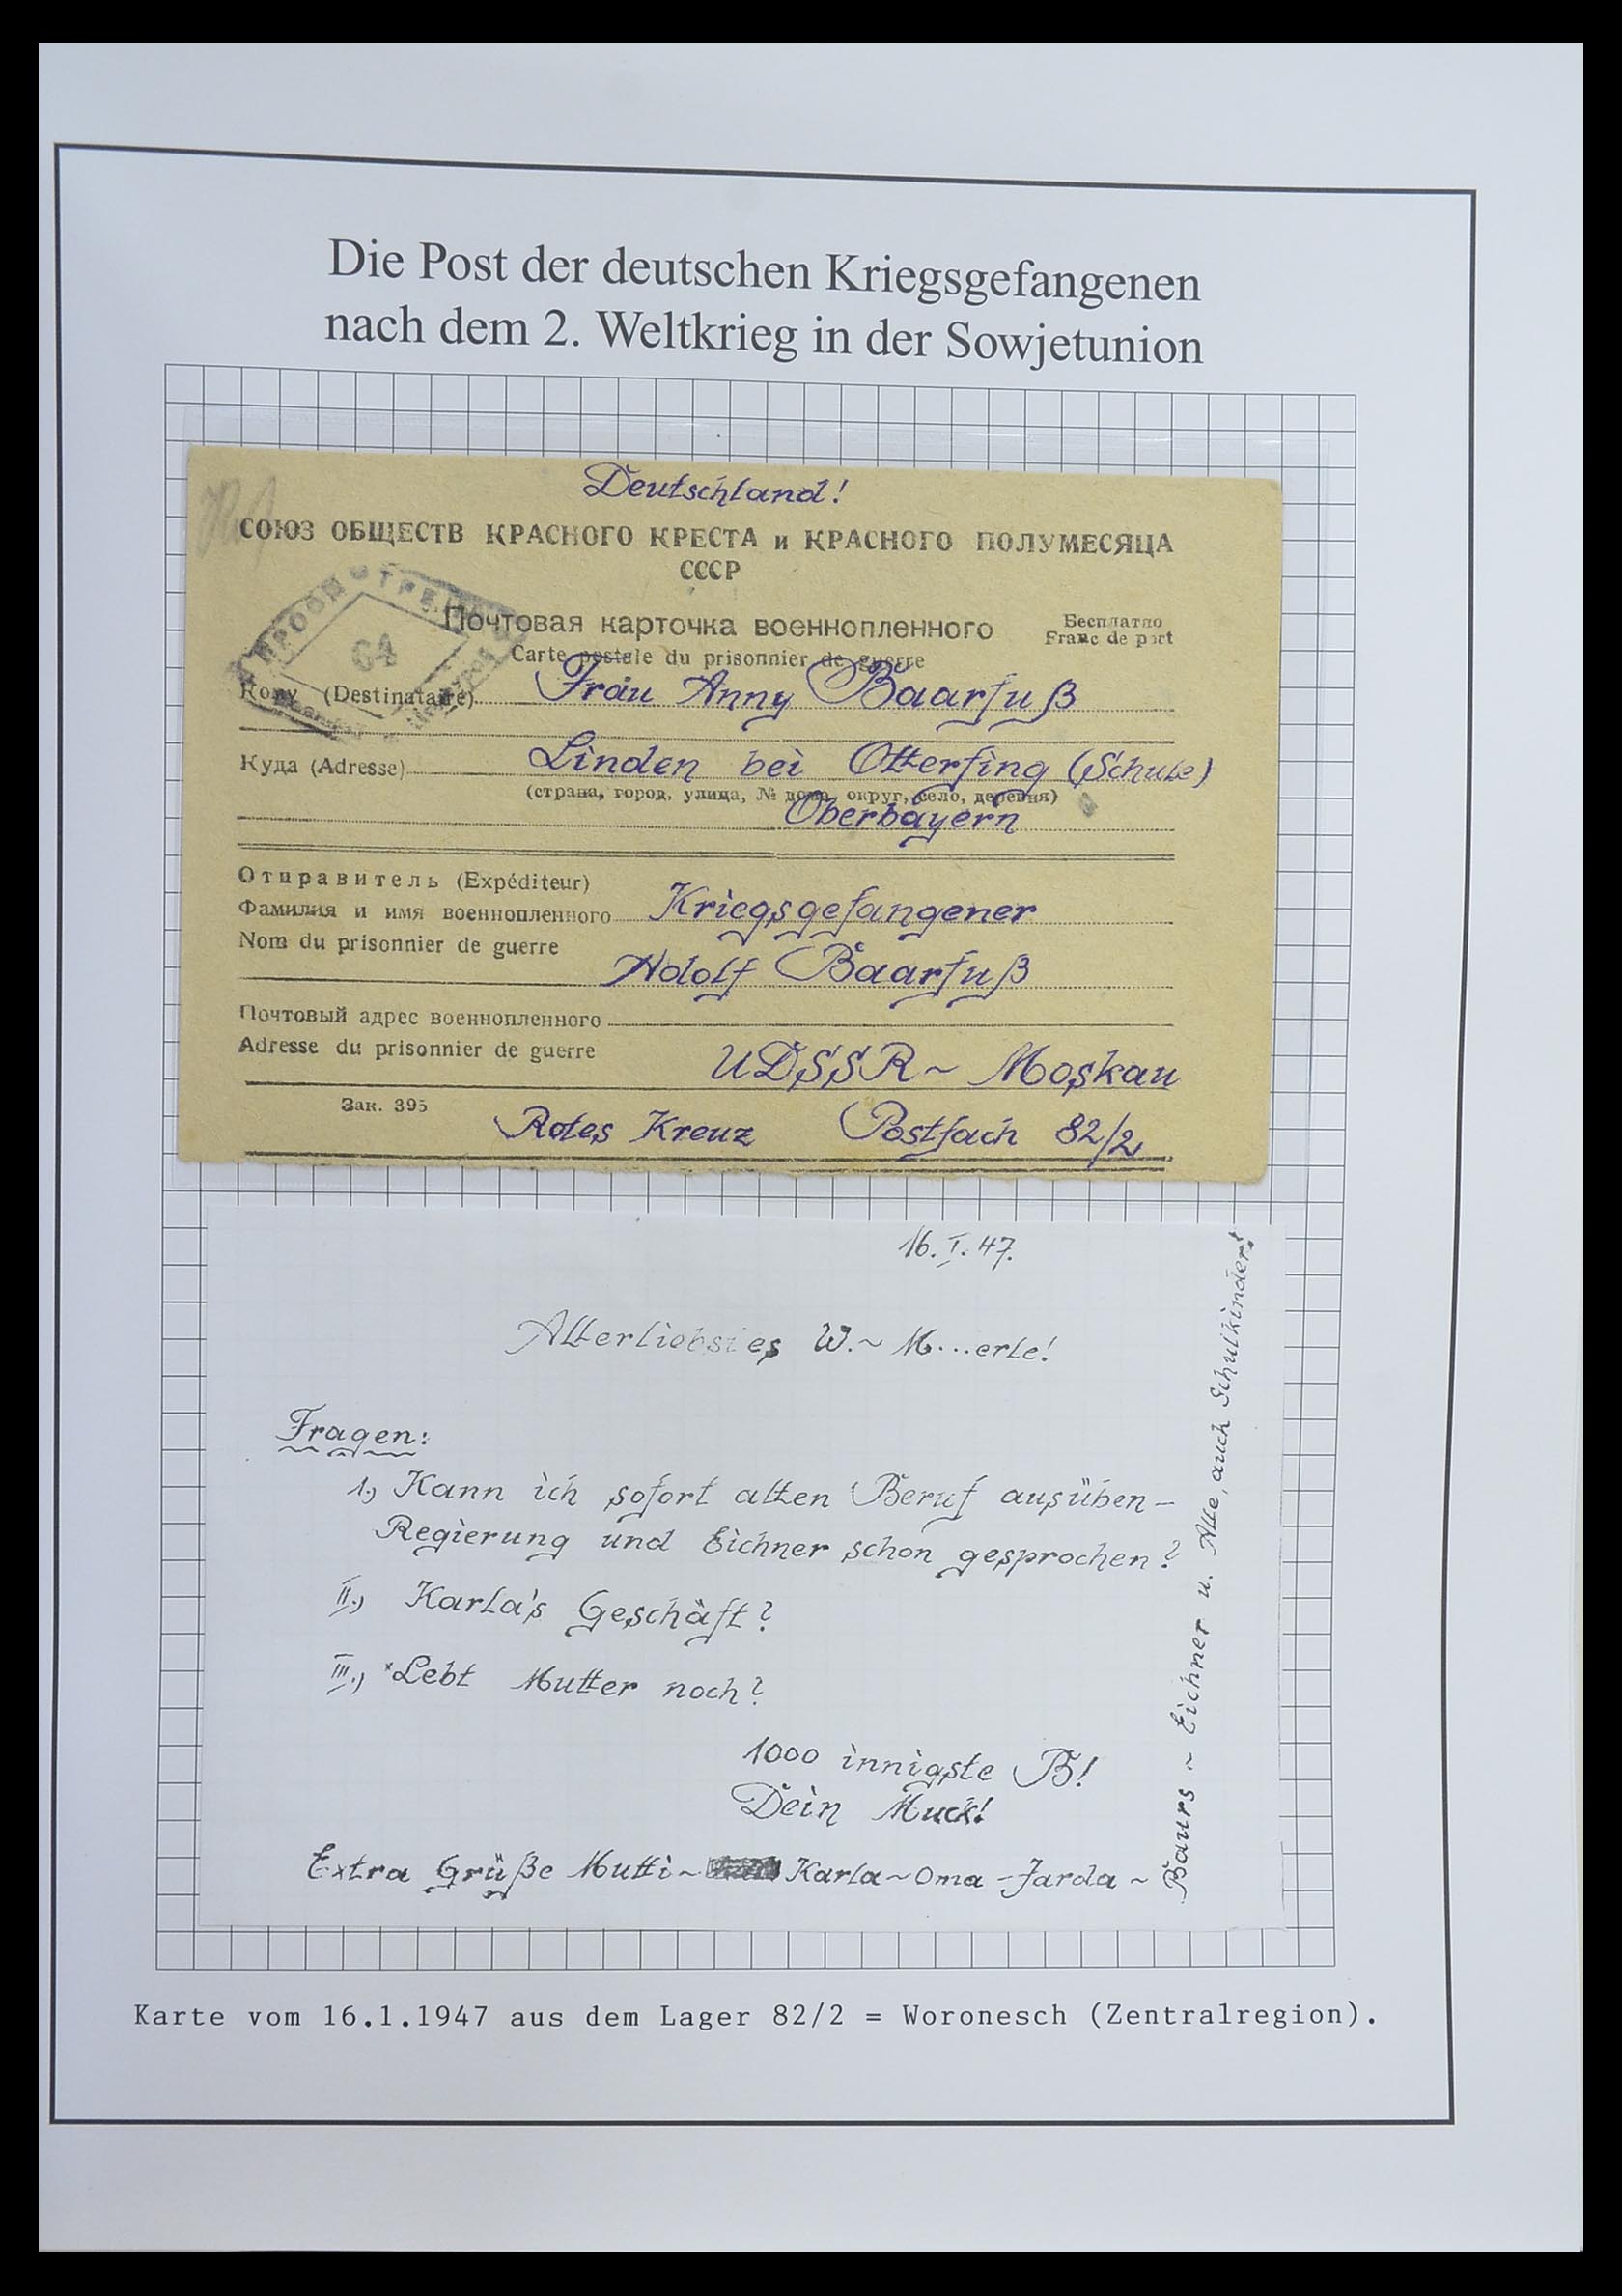 Die Post der deutschen Kriegsgefangenen
nach dem 2. Weltkrieg in der Sowjetunion
Deutschland!
СОЮЗ ОБЩЕСТВ КРАСНОГО КРЕСТА и КРАСНОГО ПОЛУМЕСЯЦА
СССР
Почтовая карточка военнопленного
Carte postale du prisonnier de guerre
Бесплатно
Franc de port
64
Кому (Destinataire) Frau Anny Baarfuß
Куда (Adresse) Linden bei Otterfing (Schule)
(страна, город, улица, № дома, округ, село, деревня)
Oberbayern
Отправитель (Expéditeur)
Фамилия и имя военнопленного Kriegsgefangener
Nom du prisonnier de guerre
Adolf Baarfuß
Почтовый адрес военнопленного
Adresse du prisonnier de guerre
UDSSR ~ Moskau
Зак. 395
Rotes Kreuz Postfach 82/2.
16. I. 47.
Allerliebstes W. ~ M...erle!
Fragen:
1.) Kann ich sofort alten Beruf ausüben –
Regierung und Eichner schon gesprochen?
II.) Karla's Geschäft?
III.) Lebt Mutter noch?
1000 innigste B!
Dein Muck!
Extra Grüße Mutti ~ Karla ~ Oma – Jarda ~
Baurs ~ Eichner u. Alle, auch Schulkinder!
Karte vom 16.1.1947 aus dem Lager 82/2 = Woronesch (Zentralregion).